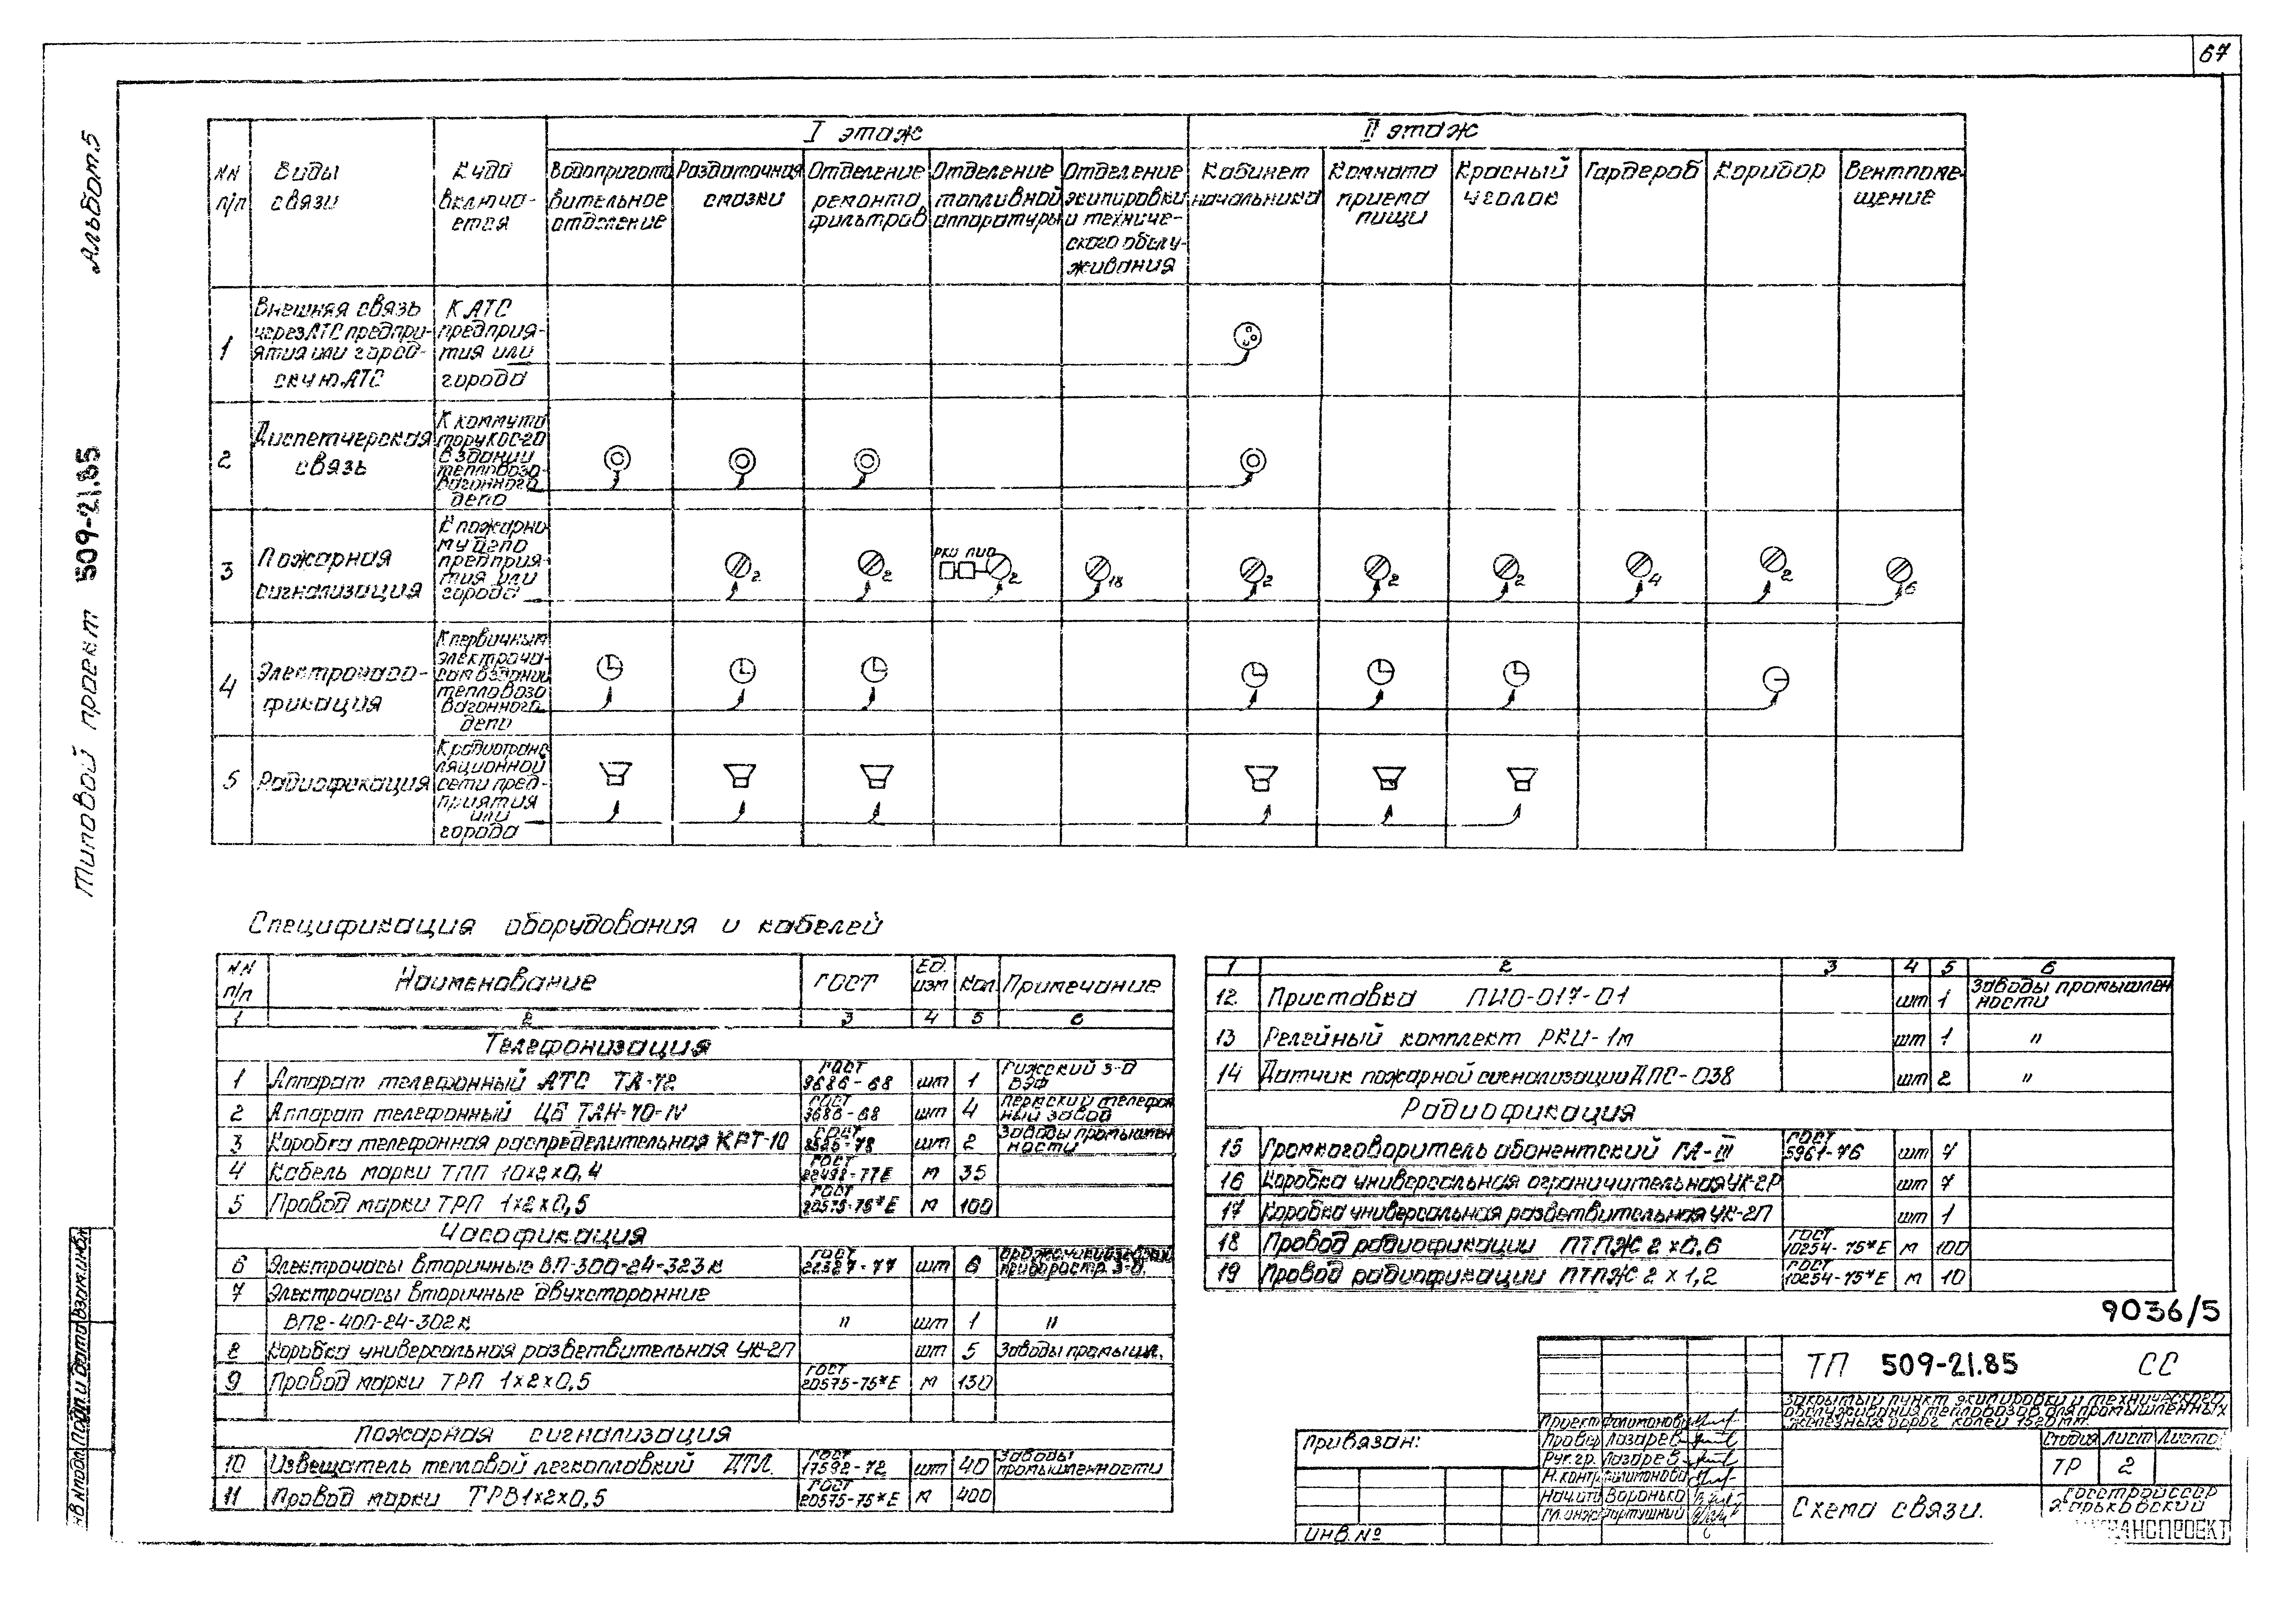 67
Альбом 5
Типовой проект 509-21.85
NN п/п
Виды связи
Куда включается
I этаж
II этаж
Водоприготовительное отделение
Раздаточная смазки
Отделение ремонта фильтров
Отделение топливной аппаратуры
Отделение экипировки и технического обслуживания
Кабинет начальника
Комната приема пищи
Красный уголок
Гардероб
Коридор
Вентпомещение
1
Внешняя связь через АТС предприятия или городскую АТС
К АТС предприятия или города
2
Диспетчерская связь
К коммутатору КОС-20 в здании тепловозовагонного депо
3
Пожарная сигнализация
К пожарному депо предприятия или города
2 2 РКИ ПИО 2 18 2 2 2 4 2 6
4
Электрочасофикация
К первичным электрочасам в здании тепловозовагонного депо
5
Радиофикация
К радиотрансляционной сети предприятия или города
Спецификация оборудования и кабелей
NN п/п Наименование ГОСТ Ед. изм Кол. Примечание
1 2 3 4 5 6
Телефонизация
1 Аппарат телефонный АТС ТА-72 ГОСТ 9686-68 шт 1 Рижский з-д ВЭФ
2 Аппарат телефонный ЦБ ТАН-70-IV ГОСТ 9686-68 шт 4 Пермский телефонный завод
3 Коробка телефонная распределительная КРТ-10 ГОСТ 8525-78 шт 2 Заводы промышленности
4 Кабель марки ТПП 10×2×0,4 ГОСТ 22498-77Е м 35
5 Провод марки ТРП 1×2×0,5 ГОСТ 20575-75*Е м 100
Часофикация
6 Электрочасы вторичные ВП-300-24-323к ГОСТ 22527-77 шт 6 приборостр. з-д.
7 Электрочасы вторичные двухсторонние
ВП2-400-24-302к " шт 1 "
8 Коробка универсальная разветвительная УК-2П шт 5 Заводы промышл.
9 Провод марки ТРП 1×2×0,5 ГОСТ 20575-75*Е м 130
Пожарная сигнализация
10 Извещатель тепловой легкоплавкий ДТЛ. ГОСТ 17592-72 шт 40 Заводы промышленности
11 Провод марки ТРВ 1×2×0,5 ГОСТ 20575-75*Е м 400
1 2 3 4 5 6
12. Приставка ПИО-017-01 шт 1 Заводы промышленности
13 Релейный комплект РКИ-1м шт 1 "
14 Датчик пожарной сигнализации ДПС-038 шт 2 "
Радиофикация
15 Громкоговоритель абонентский ГА-III ГОСТ 5961-76 шт 7
16 Коробка универсальная ограничительная УК-2Р шт 7
17 Коробка универсальная разветвительная УК-2П шт 1
18 Провод радиофикации ПТПЖ 2×0,6 ГОСТ 10254-75*Е м 100
19 Провод радиофикации ПТПЖ 2×1,2 ГОСТ 10254-75*Е м 10
9036/5
ТП 509-21.85 СС
Закрытый пункт экипировки и технического обслуживания тепловозов для промышленных железных дорог колеи 1520 мм.
Привязан:
Инв. №
Проект Филимонова
Провер Лазарев
Рук. гр. Лазарев
Н. контр Филимонова
Нач. отд Воронько
Гл. инж
Стадия Лист Листов
ТР 2
Схема связи.
Госстрой СССР
Харьковский
ТРАНСПРОЕКТ
Инв № подл Подп и дата Взам. инв. №